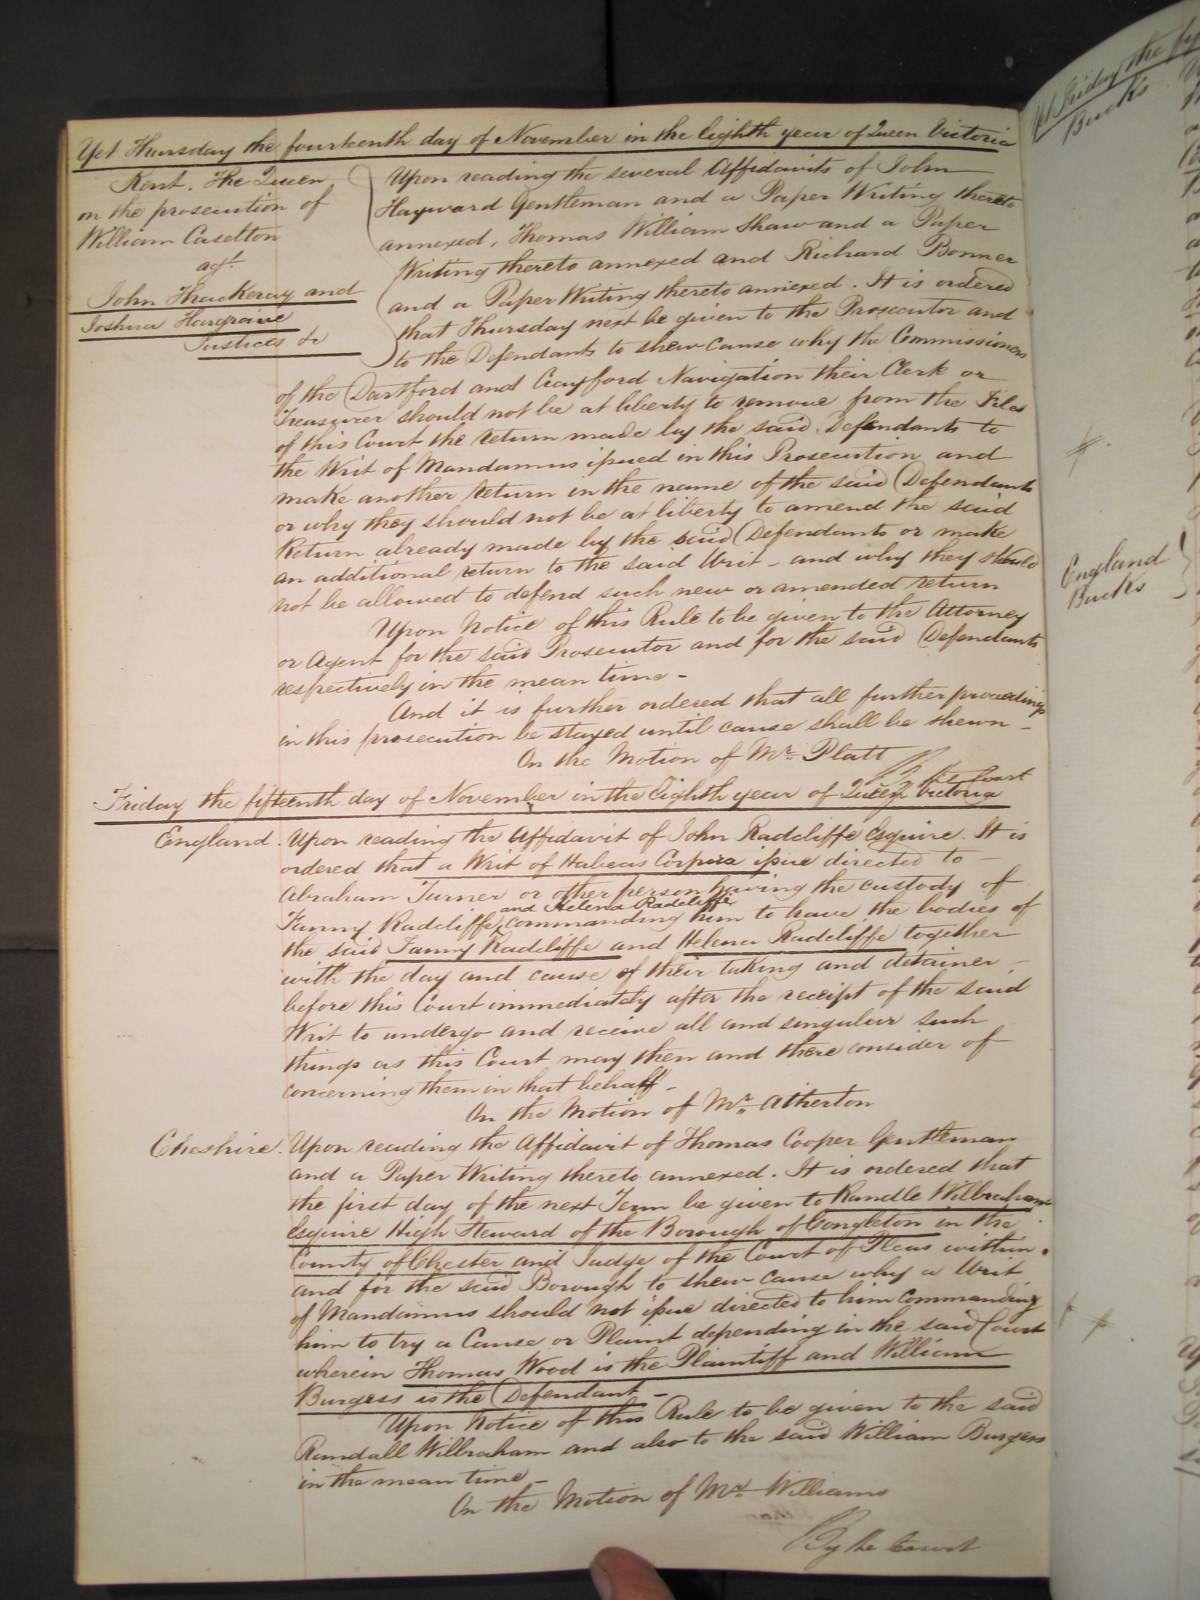 Yet Thursday the fourteenth day of November in the Eighth year of Queen Victoria
Kent. The Queen
on the prosecution of
William Caselton
agt.
John Thackeray and
Joshua Hargrave
Justices &c
Upon reading the several Affidavits of John
Hayward Gentleman and a Paper Writing thereto
annexed, Thomas William Shaw and a Paper
Writing thereto annexed and Richard Bonner
and a Paper Writing thereto annexed. It is ordered
that Thursday next be given to the Prosecutor and
to the Defendants to shew cause why the Commissioners
of the Dartford and Crayford Navigation their Clerk or
Treasurer should not be at liberty to remove from the Files
of this Court the return made by the said Defendants to
the Writ of Mandamus issued in this Prosecution and
make another return in the name of the said Defendants
or why they should not be at liberty to amend the said
Return already made by the said Defendants or make
an additional return to the said Writ - and why they should
not be allowed to defend such new or amended return
Upon Notice of this Rule to be given to the Attorney
or Agent for the said Prosecutor and for the said Defendants
respectively in the mean time -
And it is further ordered that all further proceedings
in this prosecution be stayed until cause shall be shewn -
On the Motion of Mr. Platt
By the Court
Friday the fifteenth day of November in the Eighth year of Queen Victoria
England. Upon reading the Affidavit of John Radcliffe Esquire. It is
ordered that a Writ of Habeas Corpus issue directed to -
Abraham Turner or other person having the custody of
and Helena Radcliffe
Fanny Radcliffe commanding him to have the bodies of
the said Fanny Radcliffe and Helena Radcliffe together
with the day and cause of their taking and detainer -
before this Court immediately after the receipt of the said
Writ to undergo and receive all and singular such
things as this Court may then and there consider of
concerning them in that behalf -
On the Motion of Mr. Atherton
Cheshire. Upon reading the Affidavit of Thomas Cooper Gentleman
and a Paper Writing thereto annexed. It is ordered that
the first day of the next Term be given to Randle Wilbraham
Esquire High Steward of the Borough of Congleton in the
County of Chester and Judge of the Court of Pleas within
and for the said Borough to shew cause why a Writ
of Mandamus should not issue directed to him commanding
him to try a Cause or Plaint depending in the said Court
wherein Thomas Wood is the Plaintiff and William
Burgess is the Defendant -
Upon Notice of this Rule to be given to the said
Randall Wilbraham and also to the said William Burgess
in the mean time -
On the Motion of Mr. Williams
By the Court
Yet Friday the
Bucks
England
Bucks